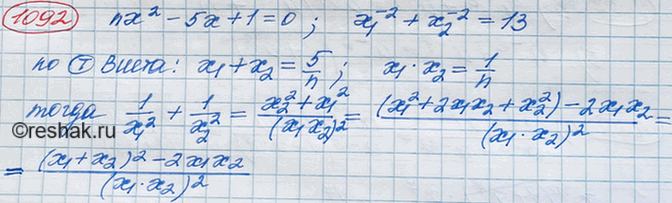 1092 nx² - 5x + 1 = 0 ; x₁⁻² + x₂⁻² = 13
по Т Виета: x₁ + x₂ = 5/n ; x₁ · x₂ = 1/n
тогда 1/x₁² + 1/x₂² = (x₂² + x₁²)/(x₁x₂)² = ((x₁² + 2x₁x₂ + x₂²) - 2x₁x₂)/(x₁ · x₂)² =
©reshak.ru
= ((x₁ + x₂)² - 2x₁x₂)/(x₁ · x₂)²